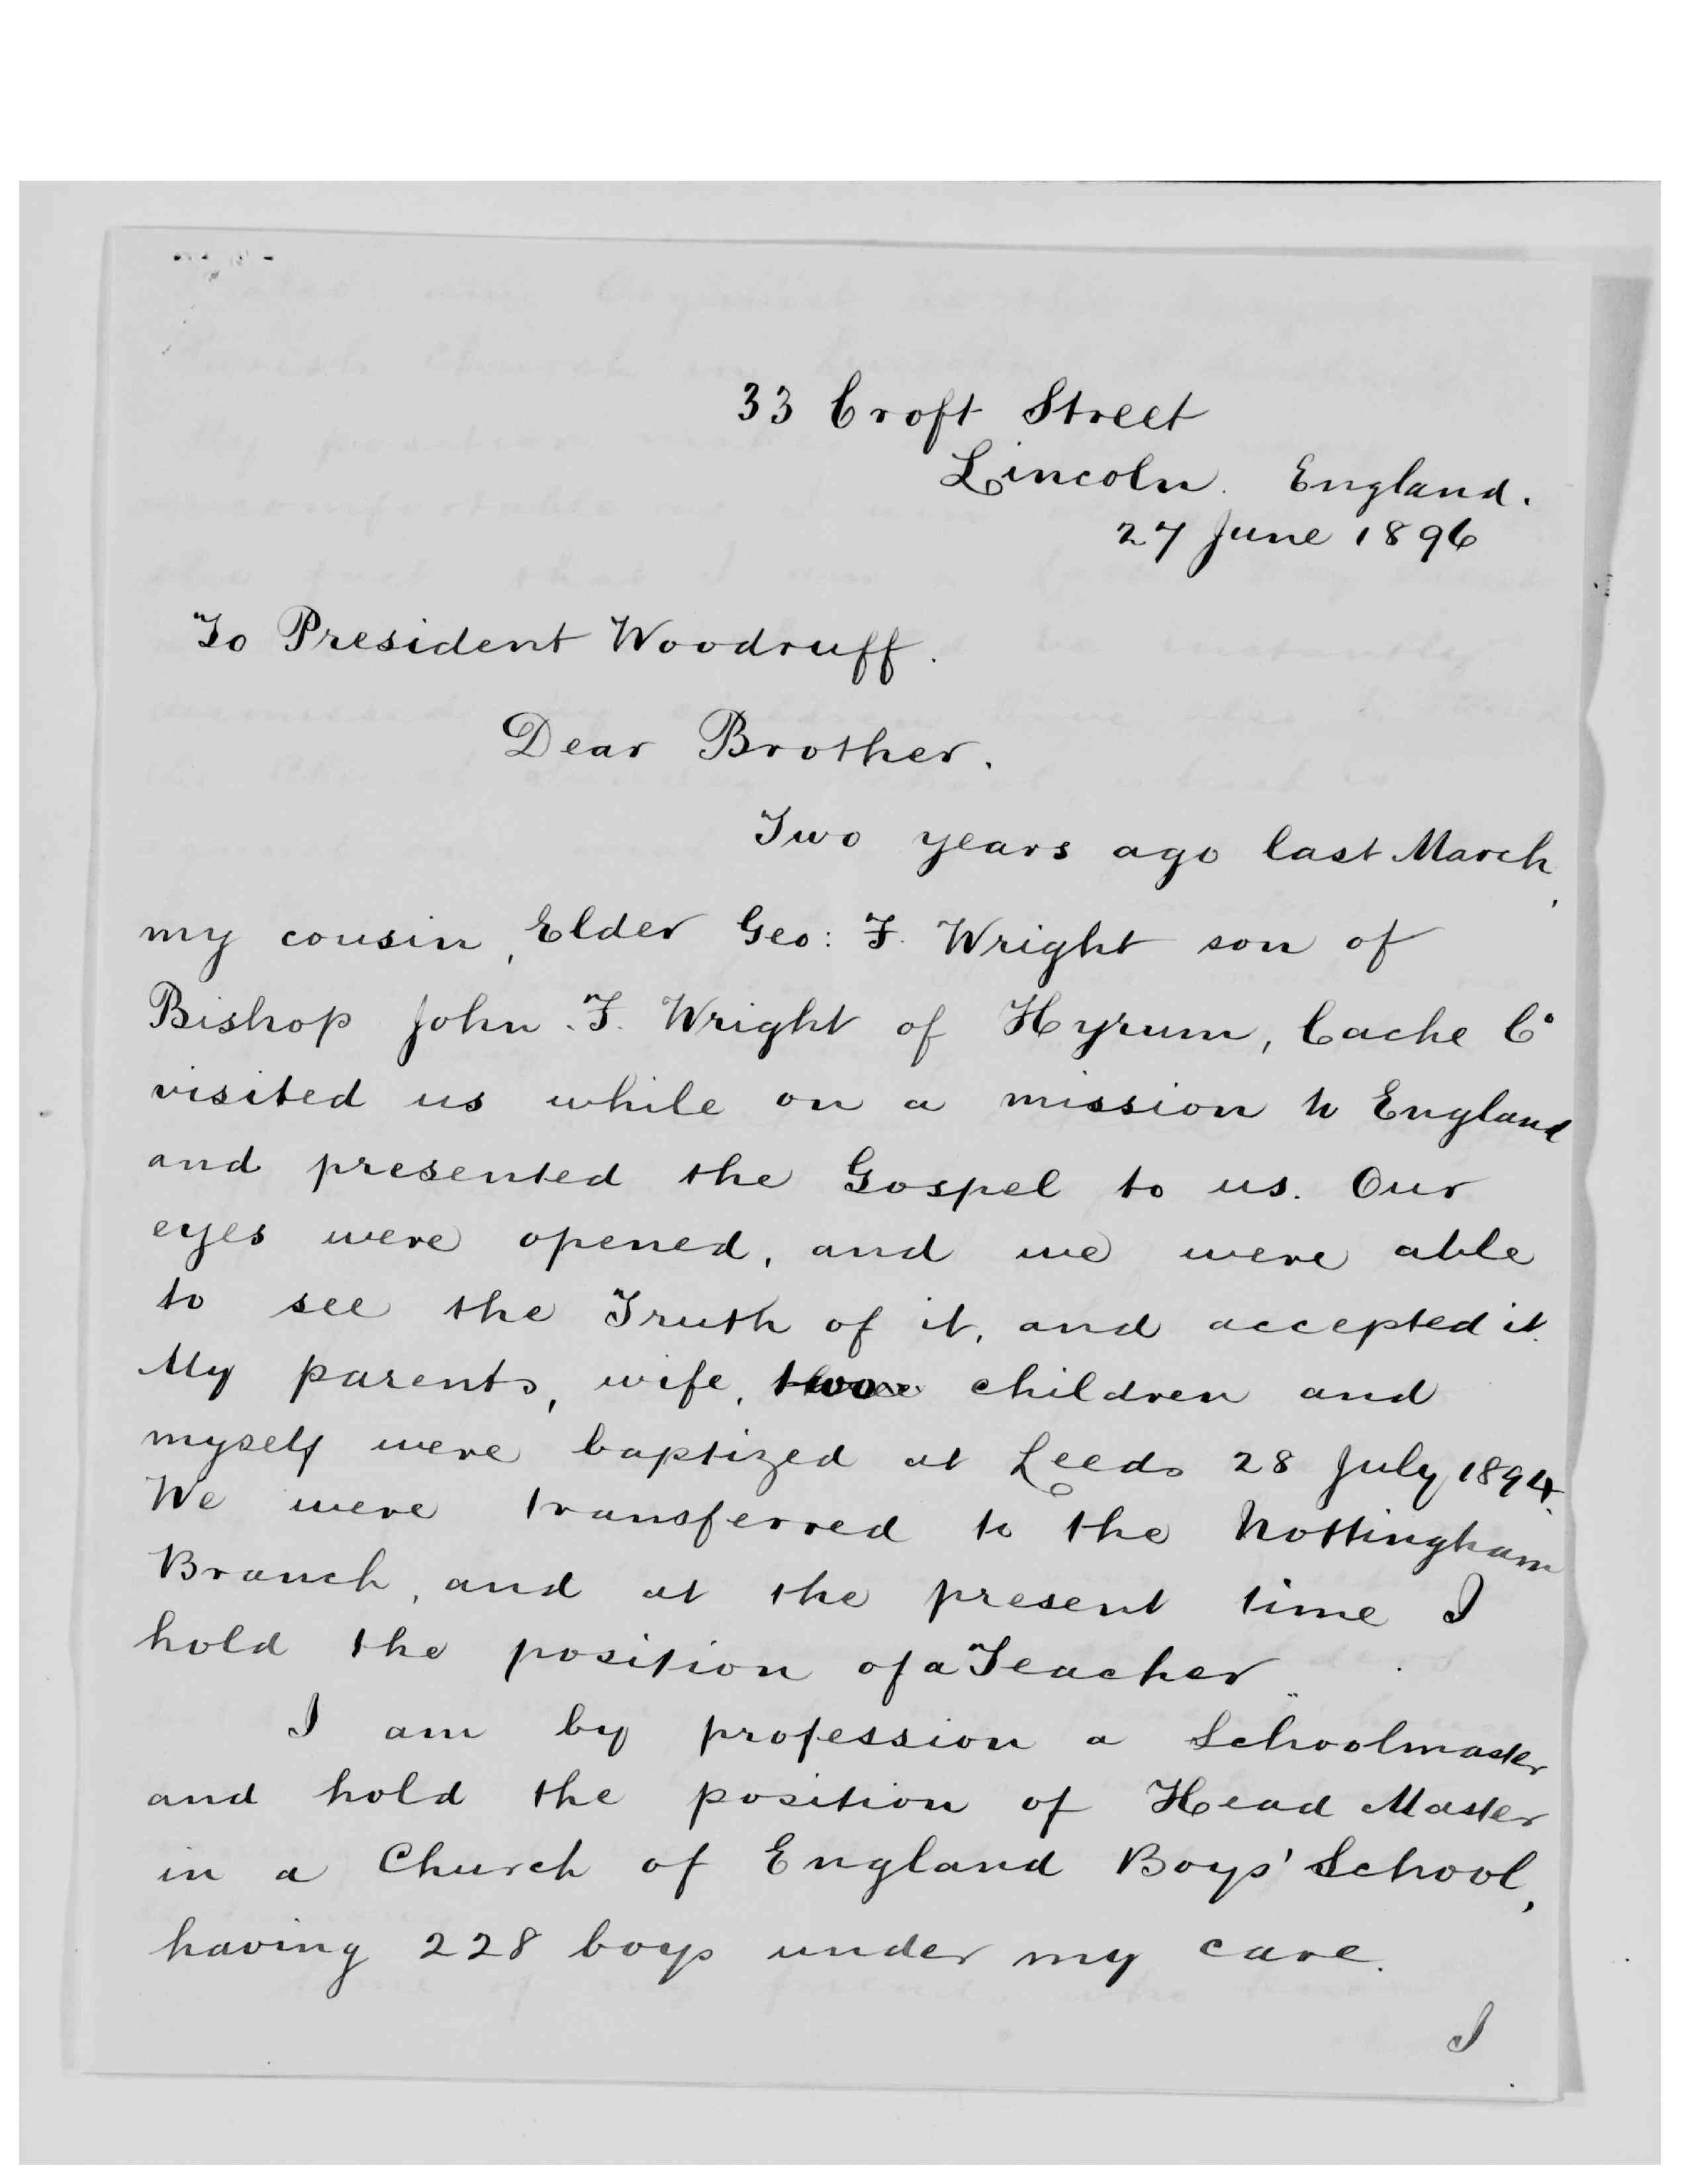 33 Croft Street
Lincoln. England.
27 June 1896
To President Woodruff.
Dear Brother.
Two years ago last March,
my cousin, Elder Geo: F. Wright son of
Bishop John F. Wright of Hyrum, Cache Co
visited us while on a mission to England
and presented the Gospel to us. Our
eyes were opened, and we were able
to see the Truth of it, and accepted it.
My parents, wife, two children and
myself were baptized at Leeds 28 July 1894.
We were transferred to the Nottingham
Branch, and at the present time I
hold the position of a Teacher
I am by profession a Schoolmaster
and hold the position of Head Master
in a Church of England Boys' School,
having 228 boys under my care.
I